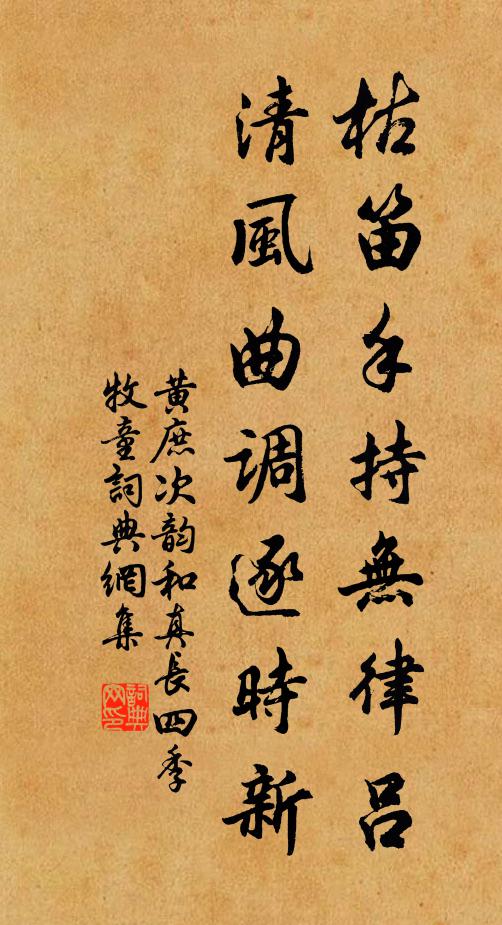 枯笛手持無律呂
清風曲调逐時新
黄庶次韵和真長四季
牧童詞典網集
詞典网印